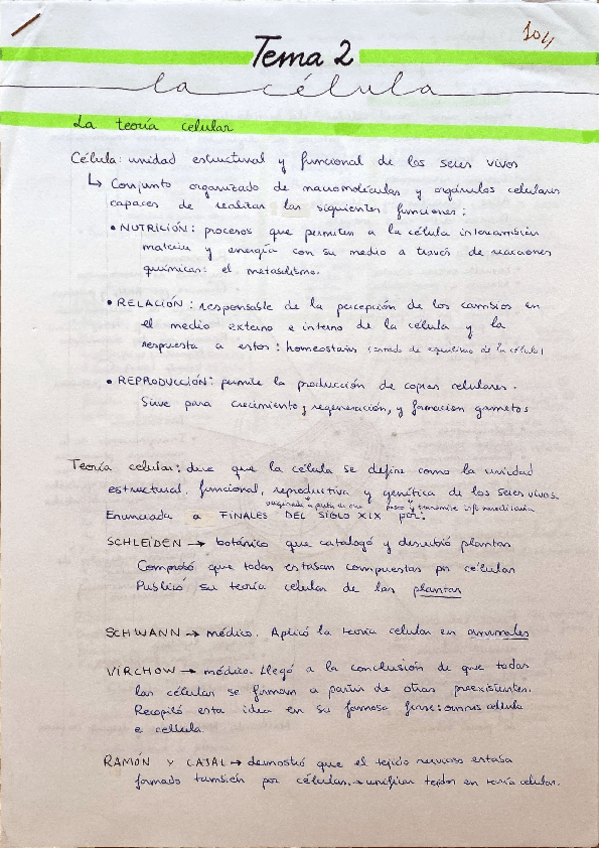 104
Tema 2
la célula
La teoría celular
Célula: unidad estructural y funcional de los seres vivos
↳ Conjunto organizado de macromoléculas y orgánulos celulares
capaces de realizar las siguientes funciones:
• NUTRICIÓN: procesos que permiten a la célula intercambiar
materia y energía con su medio a través de reacciones
químicas: el metabolismo.
• RELACIÓN: responsable de la percepción de los cambios en
el medio externo e interno de la célula y la
respuesta a estos: homeostasis (estado de equilibrio de la célula)
• REPRODUCCIÓN: permite la producción de copias celulares.
Sirve para crecimiento, regeneración, y formación gametos
Teoría celular: dice que la célula se define como la unidad
estructural, funcional, reproductiva y genética de los seres vivos.
originada a partir de otra posee y transmite info hereditaria
Enunciada a FINALES DEL SIGLO XIX por:
SCHLEIDEN → botánico que catalogó y describió plantas
Comprobó que todas estaban compuestas por células
Publicó su teoría celular de las plantas
SCHWANN → médico. Aplicó la teoría celular en animales
VIRCHOW → médico. Llegó a la conclusión de que todas
las células se forman a partir de otras preexistentes.
Recopiló esta idea en su famosa frase: omnis cellula
e cellula
RAMÓN Y CAJAL → demostró que el tejido nervioso estaba
formado también por células. → unifican tejidos en teoría celular.